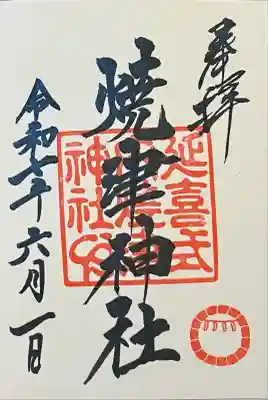 奉拝
焼津神社
延喜式
神社
令和七年六月一日